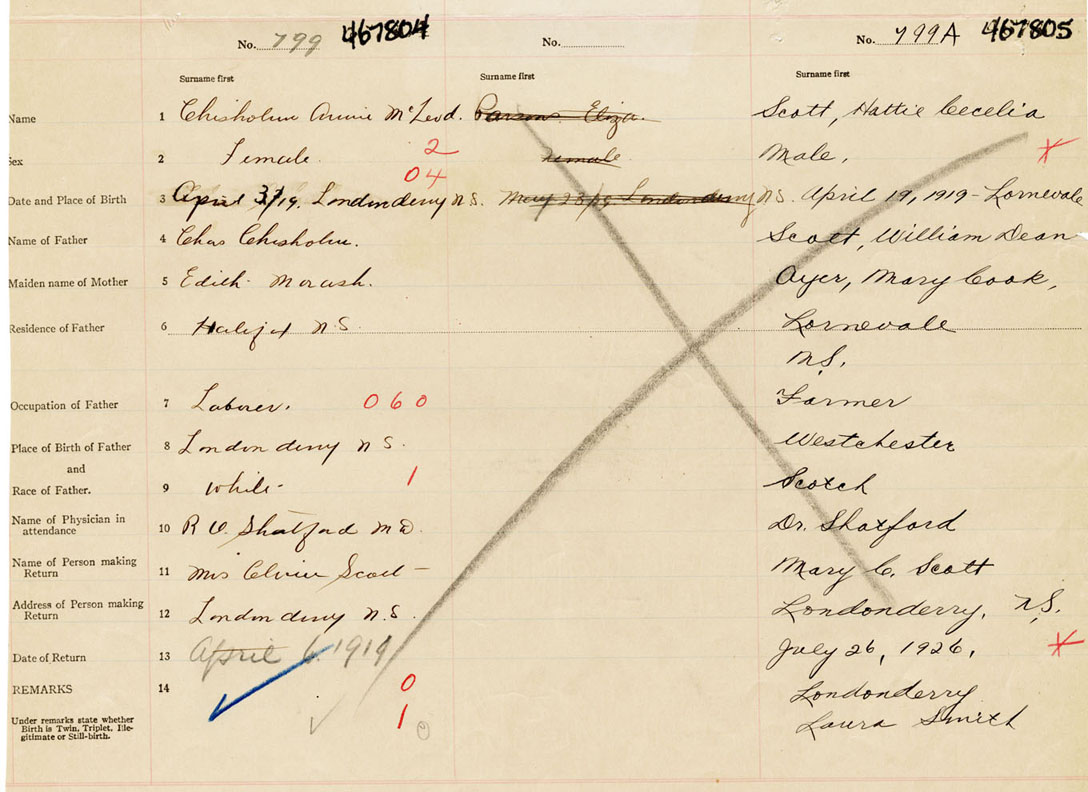 No. 799 467804 No. No. 799A 467805
Surname first Surname first Surname first
Name 1 Chisholm Annie McLeod. Parsons Eliza Scott, Hattie Cecelia
Sex 2 Female. 2 Female Male. X
04
Date and Place of Birth 3 April 3/19. Londonderry N.S. May 23/19 Londonderry N.S. April 19, 1919 - Lornevale
Name of Father 4 Chas Chisholm. Scott, William Dean
Maiden name of Mother 5 Edith Morash. Ayer, Mary Cook,
Residence of Father 6 Halifax N.S. Lornevale
N.S.
Occupation of Father 7 Laborer. 060 Farmer
Place of Birth of Father 8 Londonderry N.S. Westchester
and
Race of Father. 9 White 1 Scotch
Name of Physician in attendance 10 R O. Shatford M.D. Dr. Shatford
Name of Person making Return 11 Mrs Scott Mary C. Scott
Address of Person making Return 12 Londonderry N.S. Londonderry, N.S.
Date of Return 13 April 6. 1919 July 26, 1926. X
REMARKS 14 0 Londonderry
Under remarks state whether Birth is Twin, Triplet, Ille-
gitimate or Still-birth. 1 Laura Smith